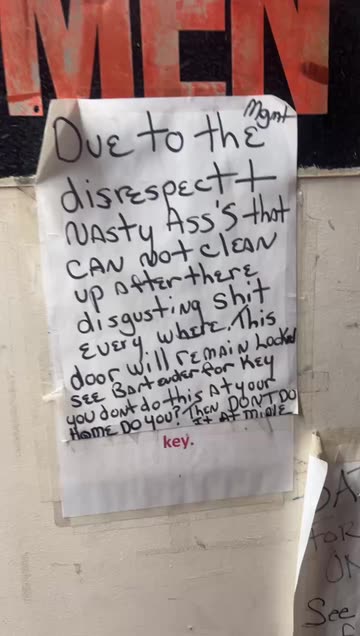 MEN
Mgmt
Due to the
disrespect +
Nasty Ass's that
CAN Not CLEAN
up After there
disgusting shit
Every where. This
door will remain Locked
SEE Bartender for Key
you dont do this At your
Home DO you? Then DONT DO
It At mine
key.
FOR
ON
See